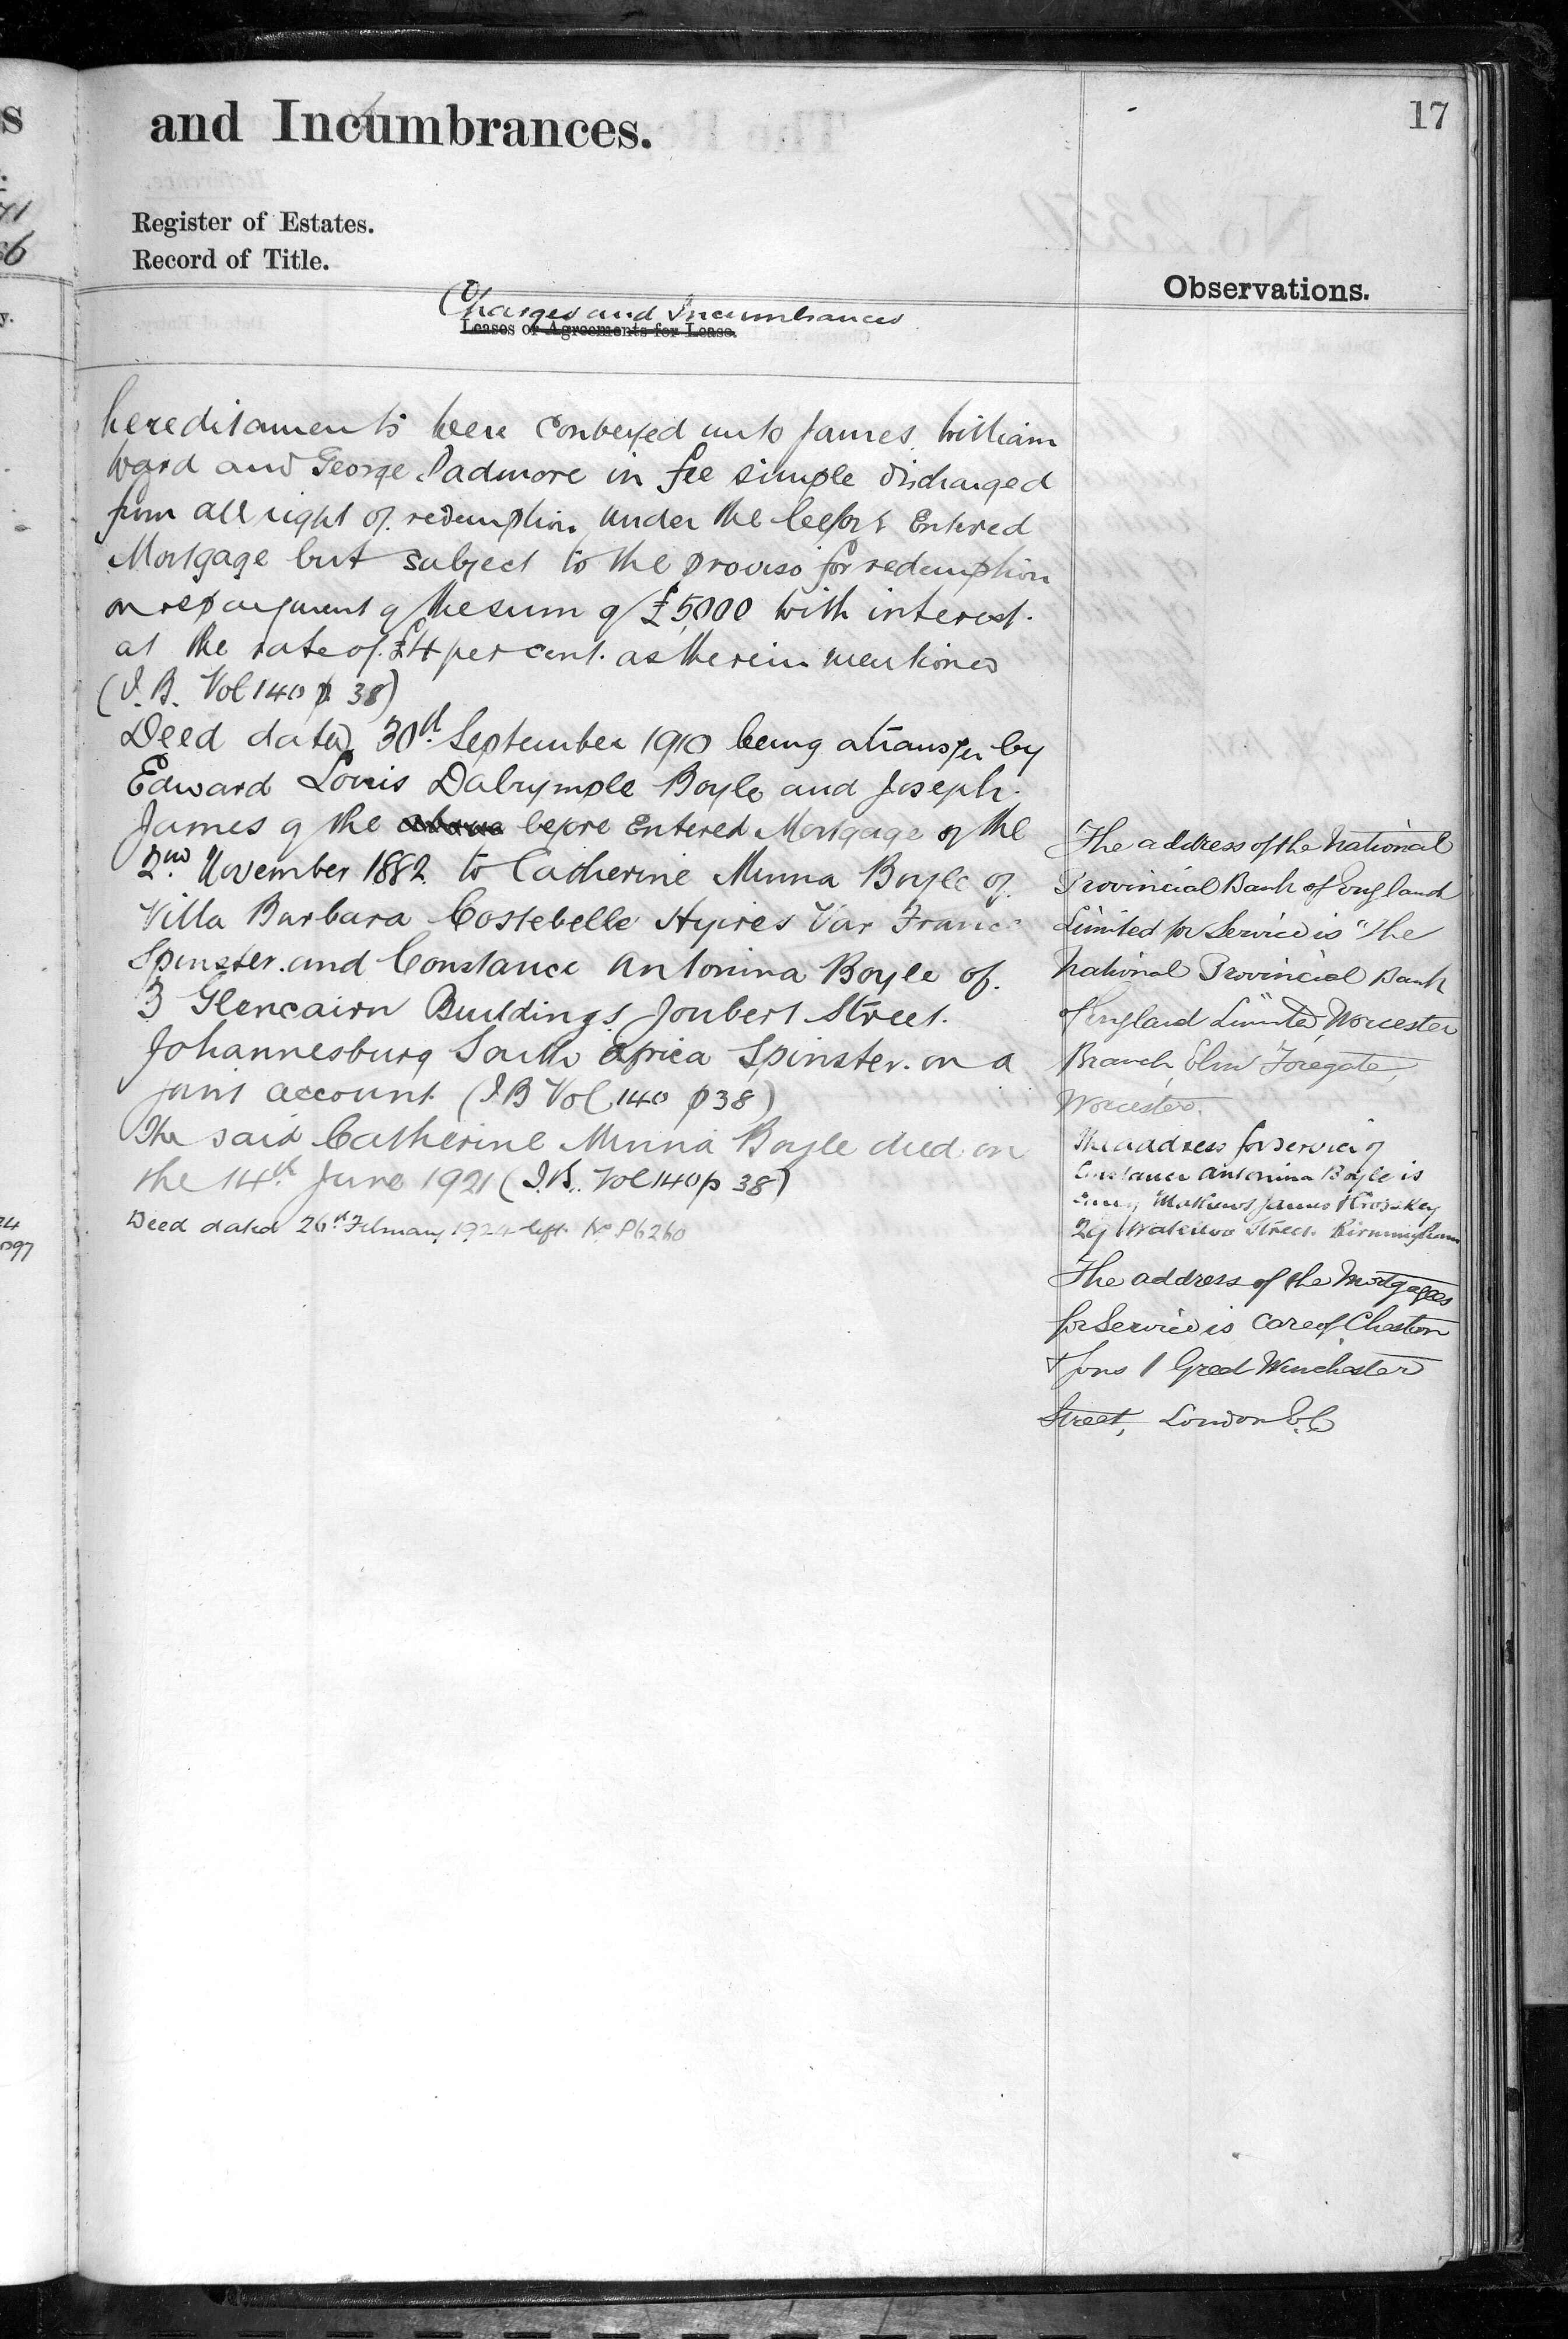 17
and Incumbrances.
Register of Estates.
Record of Title.
Observations.
Charges and Incumbrances
Leases or Agreements for Lease.
hereditaments were conveyed unto James William
Ward and George Padmore in fee simple discharged
from all right of redemption under the before Entered
Mortgage but subject to the proviso for redemption
on repayment of the sum of £5,000 with interest.
at the rate of £4 per cent. as therein mentioned
(I.B. Vol 140 p 38)
Deed dated 30th September 1910 being a transfer by
Edward Louis Dalrymple Boyle and Joseph
James of the above before Entered Mortgage of the
2nd November 1882 to Catherine Minna Boyle of
Villa Barbara Costebelle Hyeres Var France
Spinster and Constance Antonina Boyle of
3 Glencairn Buildings Joubert Street.
Johannesburg South Africa Spinster on a
joint account (I B Vol 140 p 38)
The said Catherine Minna Boyle died on
the 14th June 1921 (I.B. Vol 140 p 38)
Deed dated 26th February 1924 left No P6260
The address of the National
Provincial Bank of England
Limited for Service is "The
National Provincial Bank
of England Limited", Worcester
Branch, Foregate,
Worcester.
The address for service of
Constance Antonina Boyle is
Mathews James &
29 Waterloo Street. Birmingham
The address of the Mortgagees
for Service is Care of Cheston
& Sons 1 Great Winchester
Street, London E.C
24
71
66